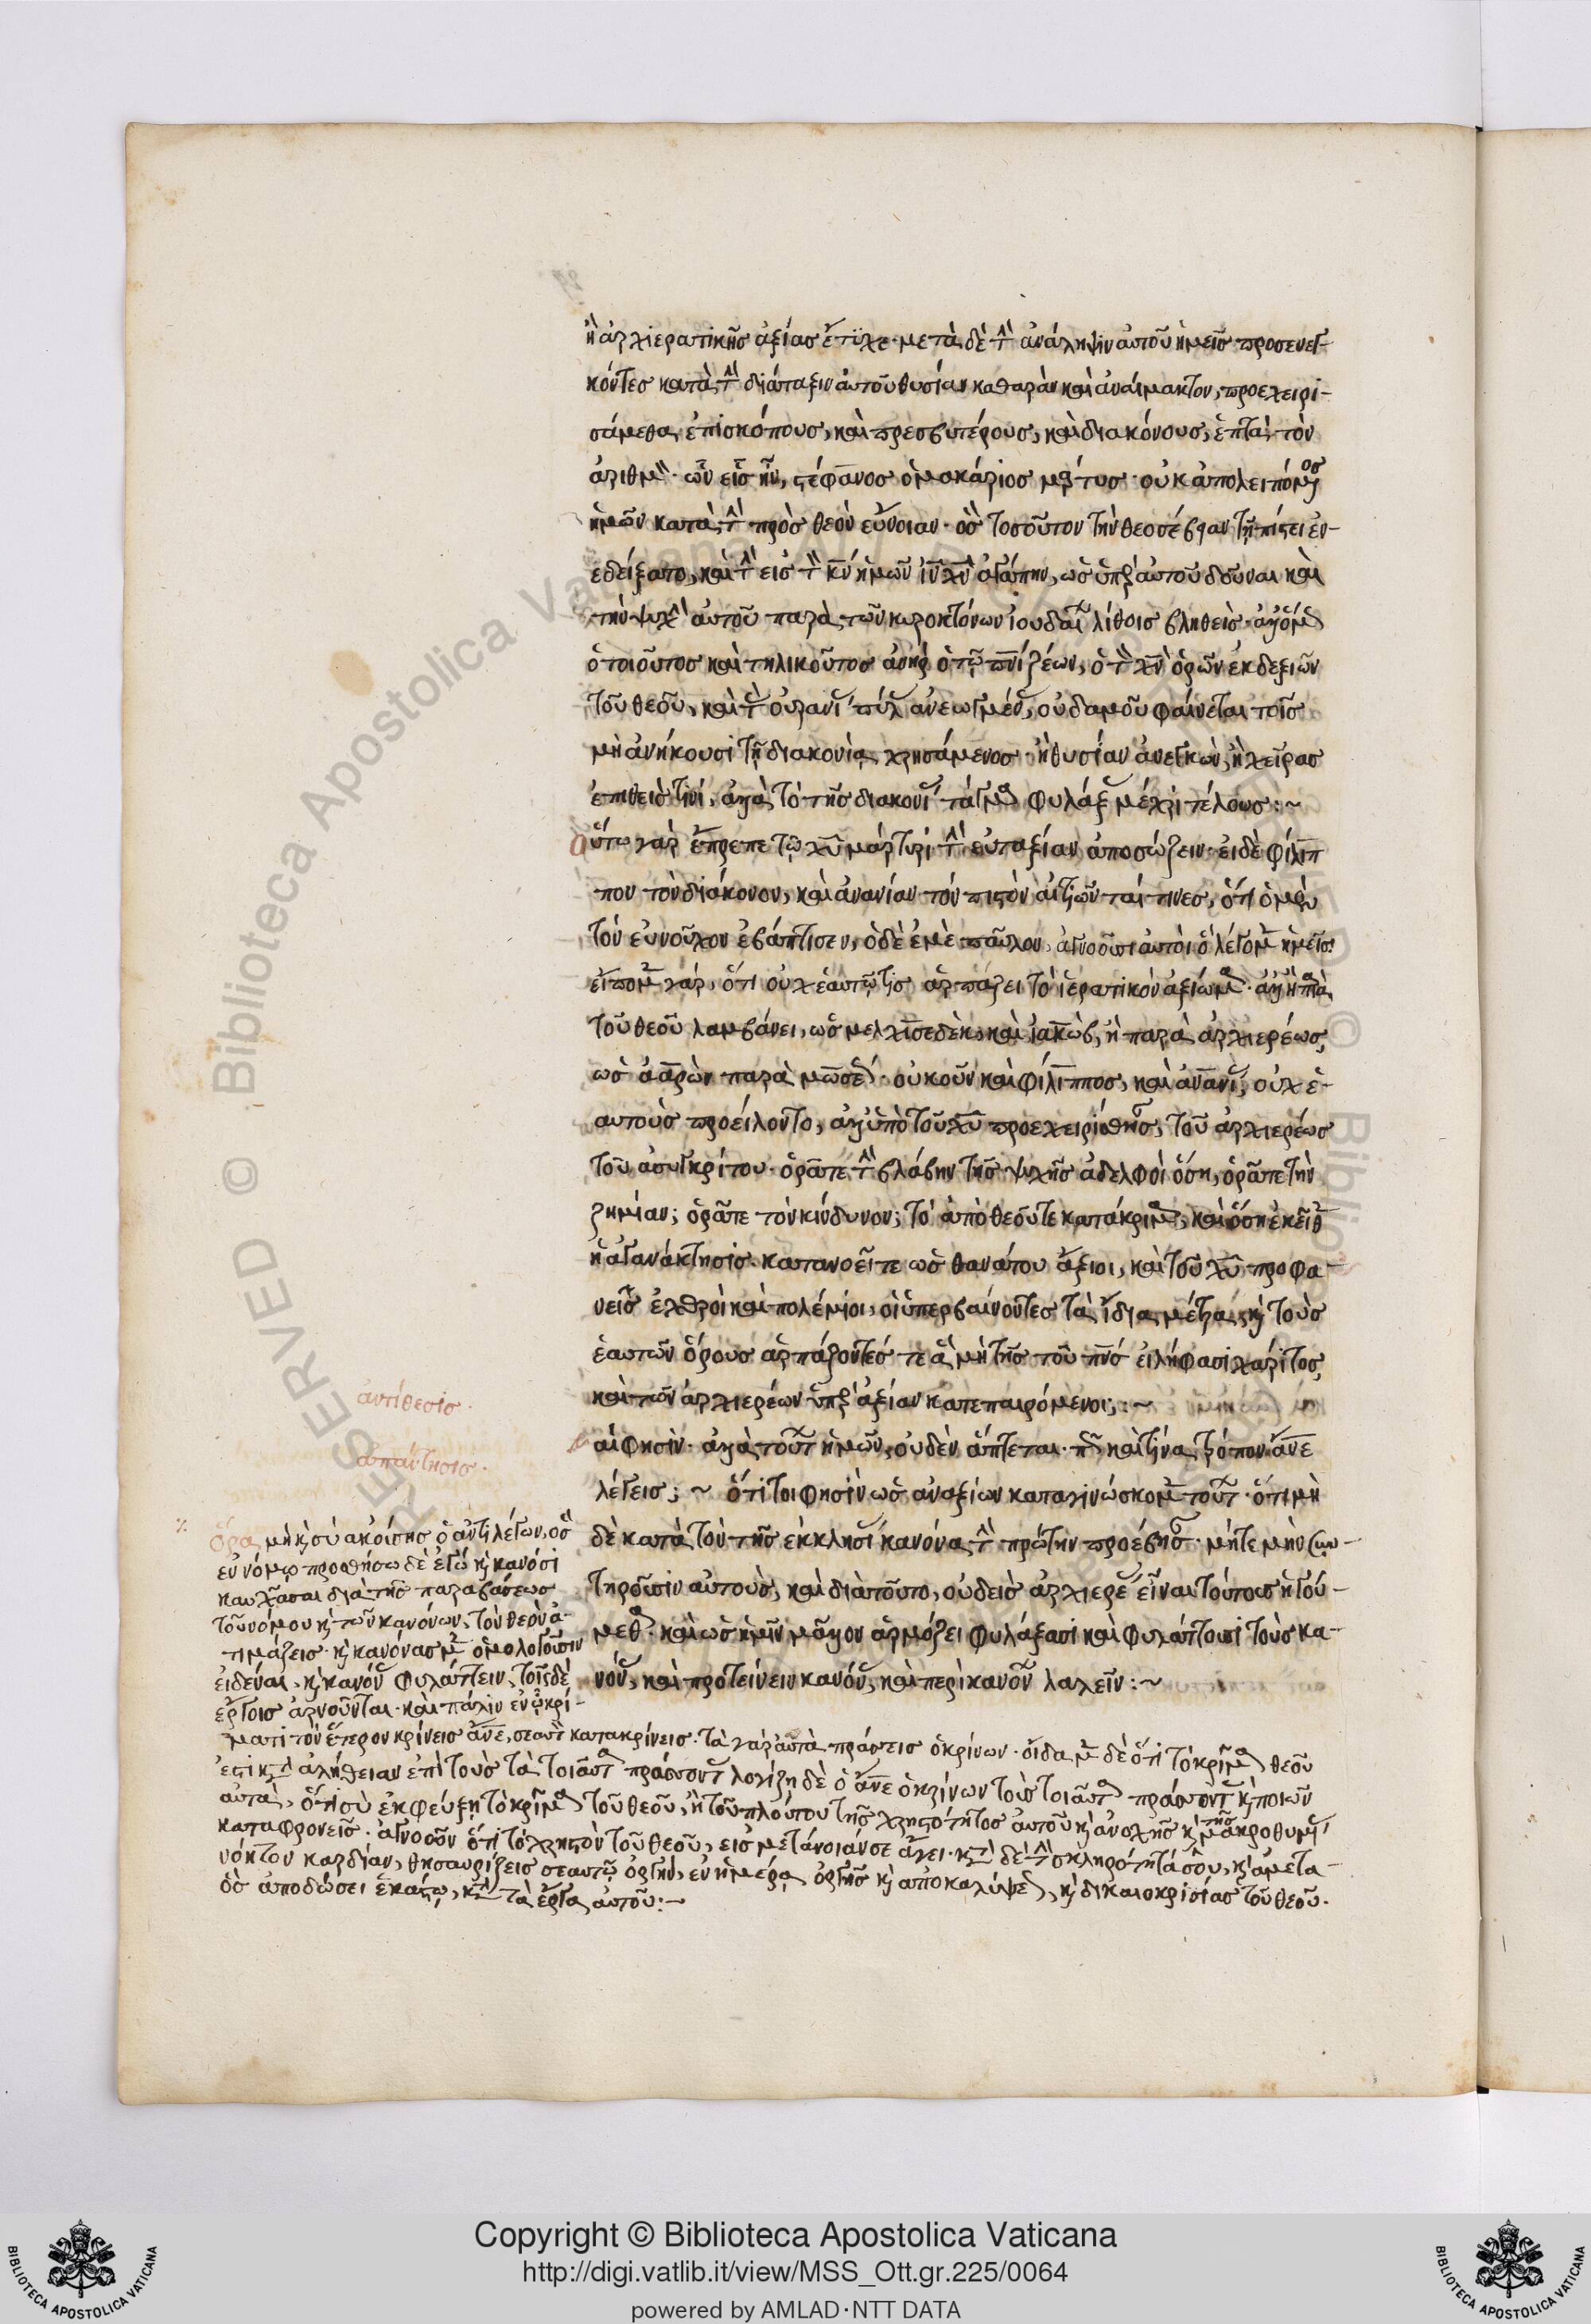 ἢ ἀρχιερατικῆς ἀξίας ἔτυχε· μετὰ δὲ τὴν ἀνάληψιν αὐτοῦ ἡμεῖς προσενεγ-
κόντες κατὰ τὴν διάταξιν αὐτοῦ θυσίαν καθαρὰν καὶ ἀναίμακτον, προεχειρι-
σάμεθα ἐπισκόπους, καὶ πρεσβυτέρους, καὶ διακόνους, ἑπτὰ τὸν
ἀριθμὸν· ὧν εἷς ἦν, στέφανος ὁ μακάριος μάρτυς· οὐκ ἀπολειπόμενος
ἡμῶν κατὰ τὴν πρὸς θεὸν εὔνοιαν· ὃς τοσοῦτον τὴν θεοσέβειαν τῇ πίστει ἐν-
εδείξατο, καὶ τὴν εἰς τὸν κν ἡμῶν ιν χν ἀγάπην, ὡς ὑπὲρ αὐτοῦ δοῦναι καὶ
τὴν ψυχὴν αὐτοῦ παρὰ τῶν κυροκτόνων ἰουδαίων λίθοις βληθεὶς· ἀλλ' ὅμως
ὁ τοιοῦτος καὶ τηλικοῦτος ἀνὴρ ὁ τῷ πνι ζέων, ὁ τὸν χν ὁρῶν ἐκ δεξιῶν
τοῦ θεοῦ, καὶ τὰς οὐρανίους πύλας ἀνεωγμένας, οὐδαμοῦ φαίνεται τοῖς
μὴ ἀνήκουσι τῇ διακονίᾳ χρησάμενος· ἢ θυσίαν ἀνεγκὼν, ἢ χεῖρας
ἐπιθεὶς τινί, ἀλλὰ τὸ τῆς διακονίας τάγμα φυλάξας μέχρι τέλους :~
Οὕτω γὰρ ἔπρεπε τῷ χυ μάρτυρι τὴν εὐταξίαν ἀποσώζειν· εἰ δὲ φίλιπ
πον τὸν διάκονον, καὶ ἀνανίαν τὸν πιστὸν αἰτιῶνταί τινες, ὅτι ὁ μὲν
τὸν εὐνοῦχον ἐβάπτισεν, ὁ δὲ ἐμὲ παῦλον, ἀγνοοῦσι αὐτοὶ ὃ λέγομεν ἡμεῖς·
εἴπομεν γὰρ, ὅτι οὐχ ἑαυτῷ τις ἁρπάζει τὸ ἱερατικὸν ἀξίωμα· ἀλλ' ἢ παρὰ
τοῦ θεοῦ λαμβάνει, ὡς μελχισεδὲκ, καὶ ἰακὼβ, ἢ παρὰ ἀρχιερέως,
ὡς ἀαρὼν παρὰ μωσέως· οὐκοῦν καὶ φίλιππος, καὶ ἀνανίας, οὐχ ἑ-
αυτοὺς προείλοντο, ἀλλ' ὑπὸ τοῦ χυ προεχειρίσθησαν, τοῦ ἀρχιερέως
τοῦ ἀσυγκρίτου· ὁρᾶτε τὴν βλάβην τῆς ψυχῆς ἀδελφοὶ ὅση, ὁρᾶτε τὴν
ζημίαν; ὁρᾶτε τὸν κίνδυνον; τὸ ἀπὸ θεοῦ τε κατάκριμα, καὶ ὅση ἐκεῖθεν
ἡ ἀγανάκτησις. κατανοεῖτε ὡς θανάτου ἄξιοι, καὶ τοῦ χυ προφα-
νεῖς ἐχθροὶ καὶ πολέμιοι, οἱ ὑπερβαίνοντες τὰ ἴδια μέτρα, κὶ τοὺς
ἑαυτῶν ὅρους ἁρπάζοντές τε ἃ μὴ τῆς τοῦ πνς εἰλήφασι χάριτος,
καὶ τῶν ἀρχιερέων ὑπὲρ ἀξίαν κατεπαιρόμενοι; :~
ἀντίθεσις·
ναί φησὶν· ἀλλὰ τούτων ἡμῶν, οὐδὲν ἅπτεται· πῶς καὶ τίνα τρόπον ἄνε
ἀπάντησις·
λέγεις; ~ ὅτι τοι φησὶν ὡς ἀναξίων καταγινώσκομεν τούτων· ὅτι μὴ
δὲ κατὰ τὸν τῆς ἐκκλησίας κανόνα τὴν πρώτην προέβησαν· μήτε μὴν συν-
τηροῦσιν αὐτοὺς, καὶ διατοῦτο, οὐδεὶς ἀρχιερεὺς εἶναι τούτους ἡγού-
μεθα· καὶ ὡς ἡμῖν μᾶλλον ἁρμόζει φυλάξασι καὶ φυλάττουσι τοὺς κα-
νόνας, καὶ προτείνειν κανόνας, καὶ περὶ κανόνων λαλεῖν :~
ὅρα μὴ κὶ σὺ ἀκούσῃς ὁ ἀντιλέγων, ὃς
ἐν νόμῳ προσθήσω δὲ ἐγώ κὶ κανόσι
καυχᾶσαι διὰ τῆς παραβάσεως
τοῦ νόμου κὶ τῶν κανόνων, τὸν θεὸν ἀ-
τιμάζεις· κὶ κανόνας μὲν ὁμολογοῦσιν
εἰδέναι, κὶ κανόνας φυλάττειν, τοῖς δὲ
ἔργοις ἀρνοῦνται· καὶ πάλιν ἐν ᾧ κρί-
ματι τὸν ἕτερον κρίνεις ἄνε, σεαυτὸν κατακρίνεις· τὰ γὰρ αὐτὰ πράσσεις ὁ κρίνων· οἴδαμεν δὲ ὅτι τὸ κρῖμα θεοῦ
ἐστι κατὰ ἀλήθειαν ἐπὶ τοὺς τὰ τοιαῦτα πράσσοντας λογίζῃ δὲ ὁ ἄνε ὁ κρίνων τοὺς τοιαῦτα πράσσοντας κὶ ποιῶν
αὐτὰ, ὅτι σὺ ἐκφεύξῃ τὸ κρῖμα τοῦ θεοῦ, ἢ τοῦ πλούτου τῆς χρηστότητος αὐτοῦ κὶ ἀνοχῆς κὶ τῆς μακροθυμίας
καταφρονεῖς· ἀγνοοῶν ὅτι τὸ χρηστὸν τοῦ θεοῦ, εἰς μετάνοιάν σε ἄγει· κατὰ δὲ τὴν σκληρότητά σου, κὶ ἀμετα-
νόητον καρδίαν, θησαυρίζεις σεαυτῷ ὀργὴν, ἐν ἡμέρᾳ ὀργῆς κὶ ἀποκαλύψεως, κὶ δικαιοκρισίας τοῦ θεοῦ·
ὃς ἀποδώσει ἑκάστῳ, κατὰ τὰ ἔργα αὐτοῦ :~
Copyright © Biblioteca Apostolica Vaticana
http://digi.vatlib.it/view/MSS_Ott.gr.225/0064
powered by AMLAD·NTT DATA